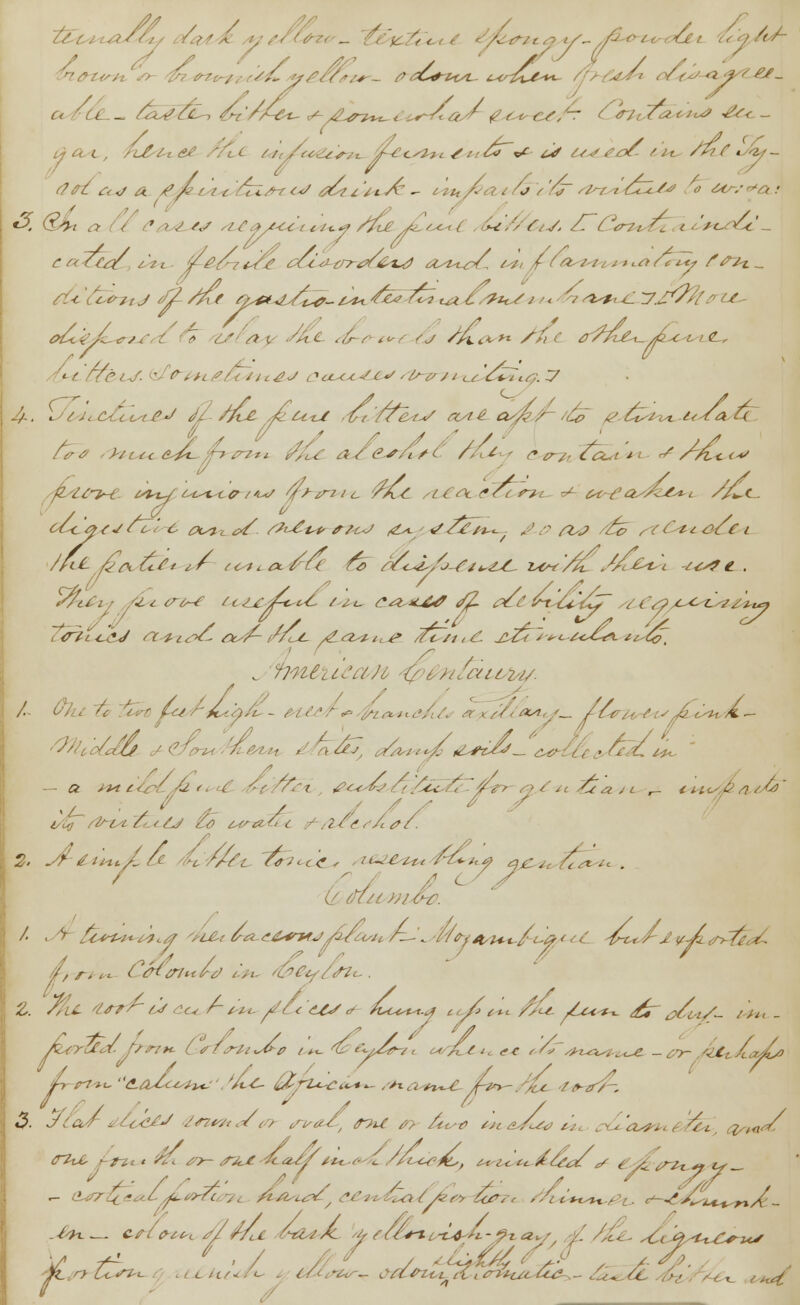 ternally dark yellow - texture spongy - powder light
brown or brownish yellow - odour when fresh disagree-
able - taste, bitter & somewhat sweet. Contains su-
gar, hence the infusion ferments & is used in the Ty-
rol as a spirituous drink - imparts its virtues to
3. In all cases requiring the pure bitters. [Contraindi-
cated in febrile disorders and inflammatory con-
ditions of the gastro-intestinal membrane.] [More
disposed to relax the bowels than the other pure
bitters. Sometimes causes vomiting.]
4. Tinctures of the pure bitters are apt to stimulate
too much from the alcohol they contain & thus
prove injurious from the reaction & weaken the
digestive and nervous system, so as to render
the patient unable to dispense with their use.
They prove useful in cases of debility requiring
tonics and at the same time stimulants.
American Centaury.
1. One to two feet high - erect & branches axillary - flowers pink -
Middle & Southern states, damp soils - collected in
- a mild pure bitter, substitute for gentian - imparts
its virtues to water & alcohol.
2. A simple bitter tonic, resembling gentian.
Columbo.
1. A twining herbaceous plant - Mozambique but exported
from Colombo in Ceylon.
2. The root is cut in slices & hung up in the sun to dry - im-
ported from Colombo in Ceylon whence its name - or perhaps
from "calum" the African name for the root.
3. Flat slices round or oval, one or two inches in diameter, and
one fourth or one half inch thick, wrinkled & spongy -
- cortical portion hard, central portion thinner & shrunk-
en - colour of the bark yellowish-gray, of the ligneous
portion greenish yellow - odour slightly aromatic - taste bitter and